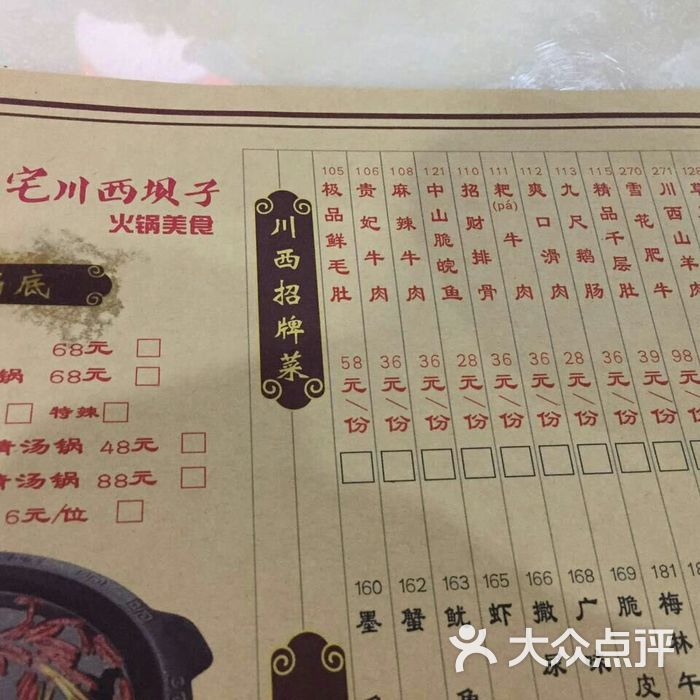 宅川西坝子
火锅美食
底
68元
锅 68元
特辣
青汤锅 48元
青汤锅 88元
6元/位
川西招牌菜
105 极品鲜毛肚 58元/份
106 贵妃牛肉 36元/份
108 麻辣牛肉 36元/份
121 中山脆皖鱼 36元/份
110 招财排骨 28元/份
111 耙(pá)牛肉 36元/份
112 爽口滑肉 36元/份
113 九尺鹅肠 28元/份
115 精品千层肚 36元/份
270 雪花肥牛 39元/份
271 川西山羊肉 98元/份
128
160 墨
162 蟹
163 鱿
165 虾
166 撒尿
168 广味
169 脆皮
181 梅林午
大众点评